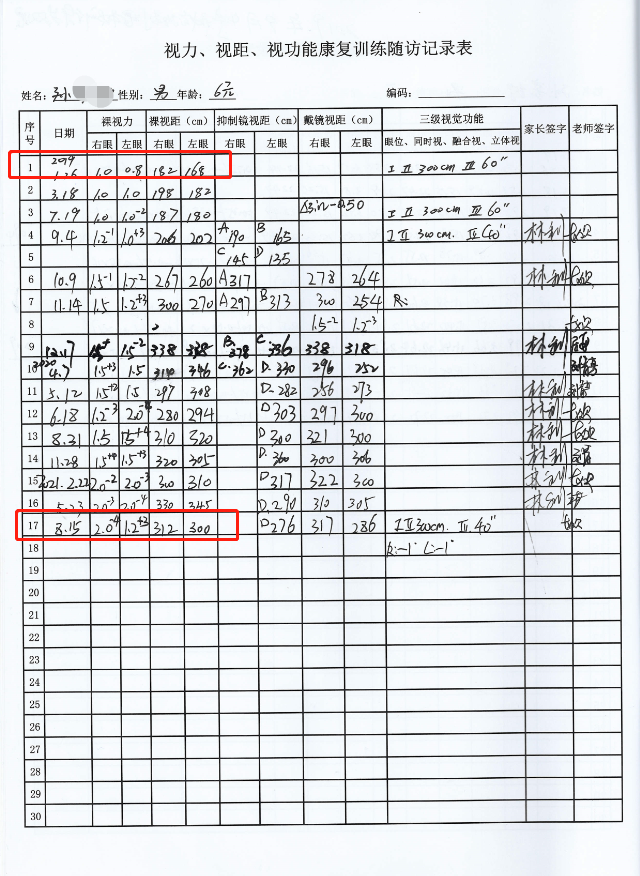 视力、视距、视功能康复训练随访记录表
姓名：孙 性别：男 年龄：6 编码：
序号 日期 裸视力 裸视距（cm） 抑制镜视距（cm） 戴镜视距（cm） 三级视觉功能 家长签字 老师签字
右眼 左眼 右眼 左眼 右眼 左眼 右眼 左眼 眼位、同时视、融合视、立体视
1 2019 1.0 0.8 182 168 I II 300cm III 60"
2 3.18 1.0 1.0 198 182
3 7.19 1.0 1.0-2 187 180 -0.50 I II 300cm III 60"
4 9.4 1.2-1 1.0+3 206 202 A190 B165 I II 300cm. III 40" 林利
5 C145 D135
6 10.9 1.5-1 267 260 A317 278 264 林利
7 11.14 1.5 1.2+3 300 270 A297 B313 300 254 R:
8 1.5-2 1.2-3
9 12.17 1.5-2 338 338 B.378 C.336 338 318 林利
10 2020 4.7 1.5+3 1.5 346 C.362 D.330 296 252 林利
11 5.12 1.5+2 1.5 297 308 D.282 256 273 林利
12 6.18 1.2-3 280 294 D303 297 300 林利
13 8.31 1.5 1.5+4 310 320 D.300 321 300 林利
14 11.28 1.5+3 320 305 D.300 300 306 林利
15 2021.2.22 2.0-2 2.0-3 300 310 D317 322 300 林利
16 5.23 2.0-3 2.0-4 330 345 D.290 310 305 林利
17 8.15 2.0-4 1.2+3 312 300 D276 317 286 I II 300cm. III. 40"
18 R:-1° L:-1°
19
20
21
22
23
24
25
26
27
28
29
30